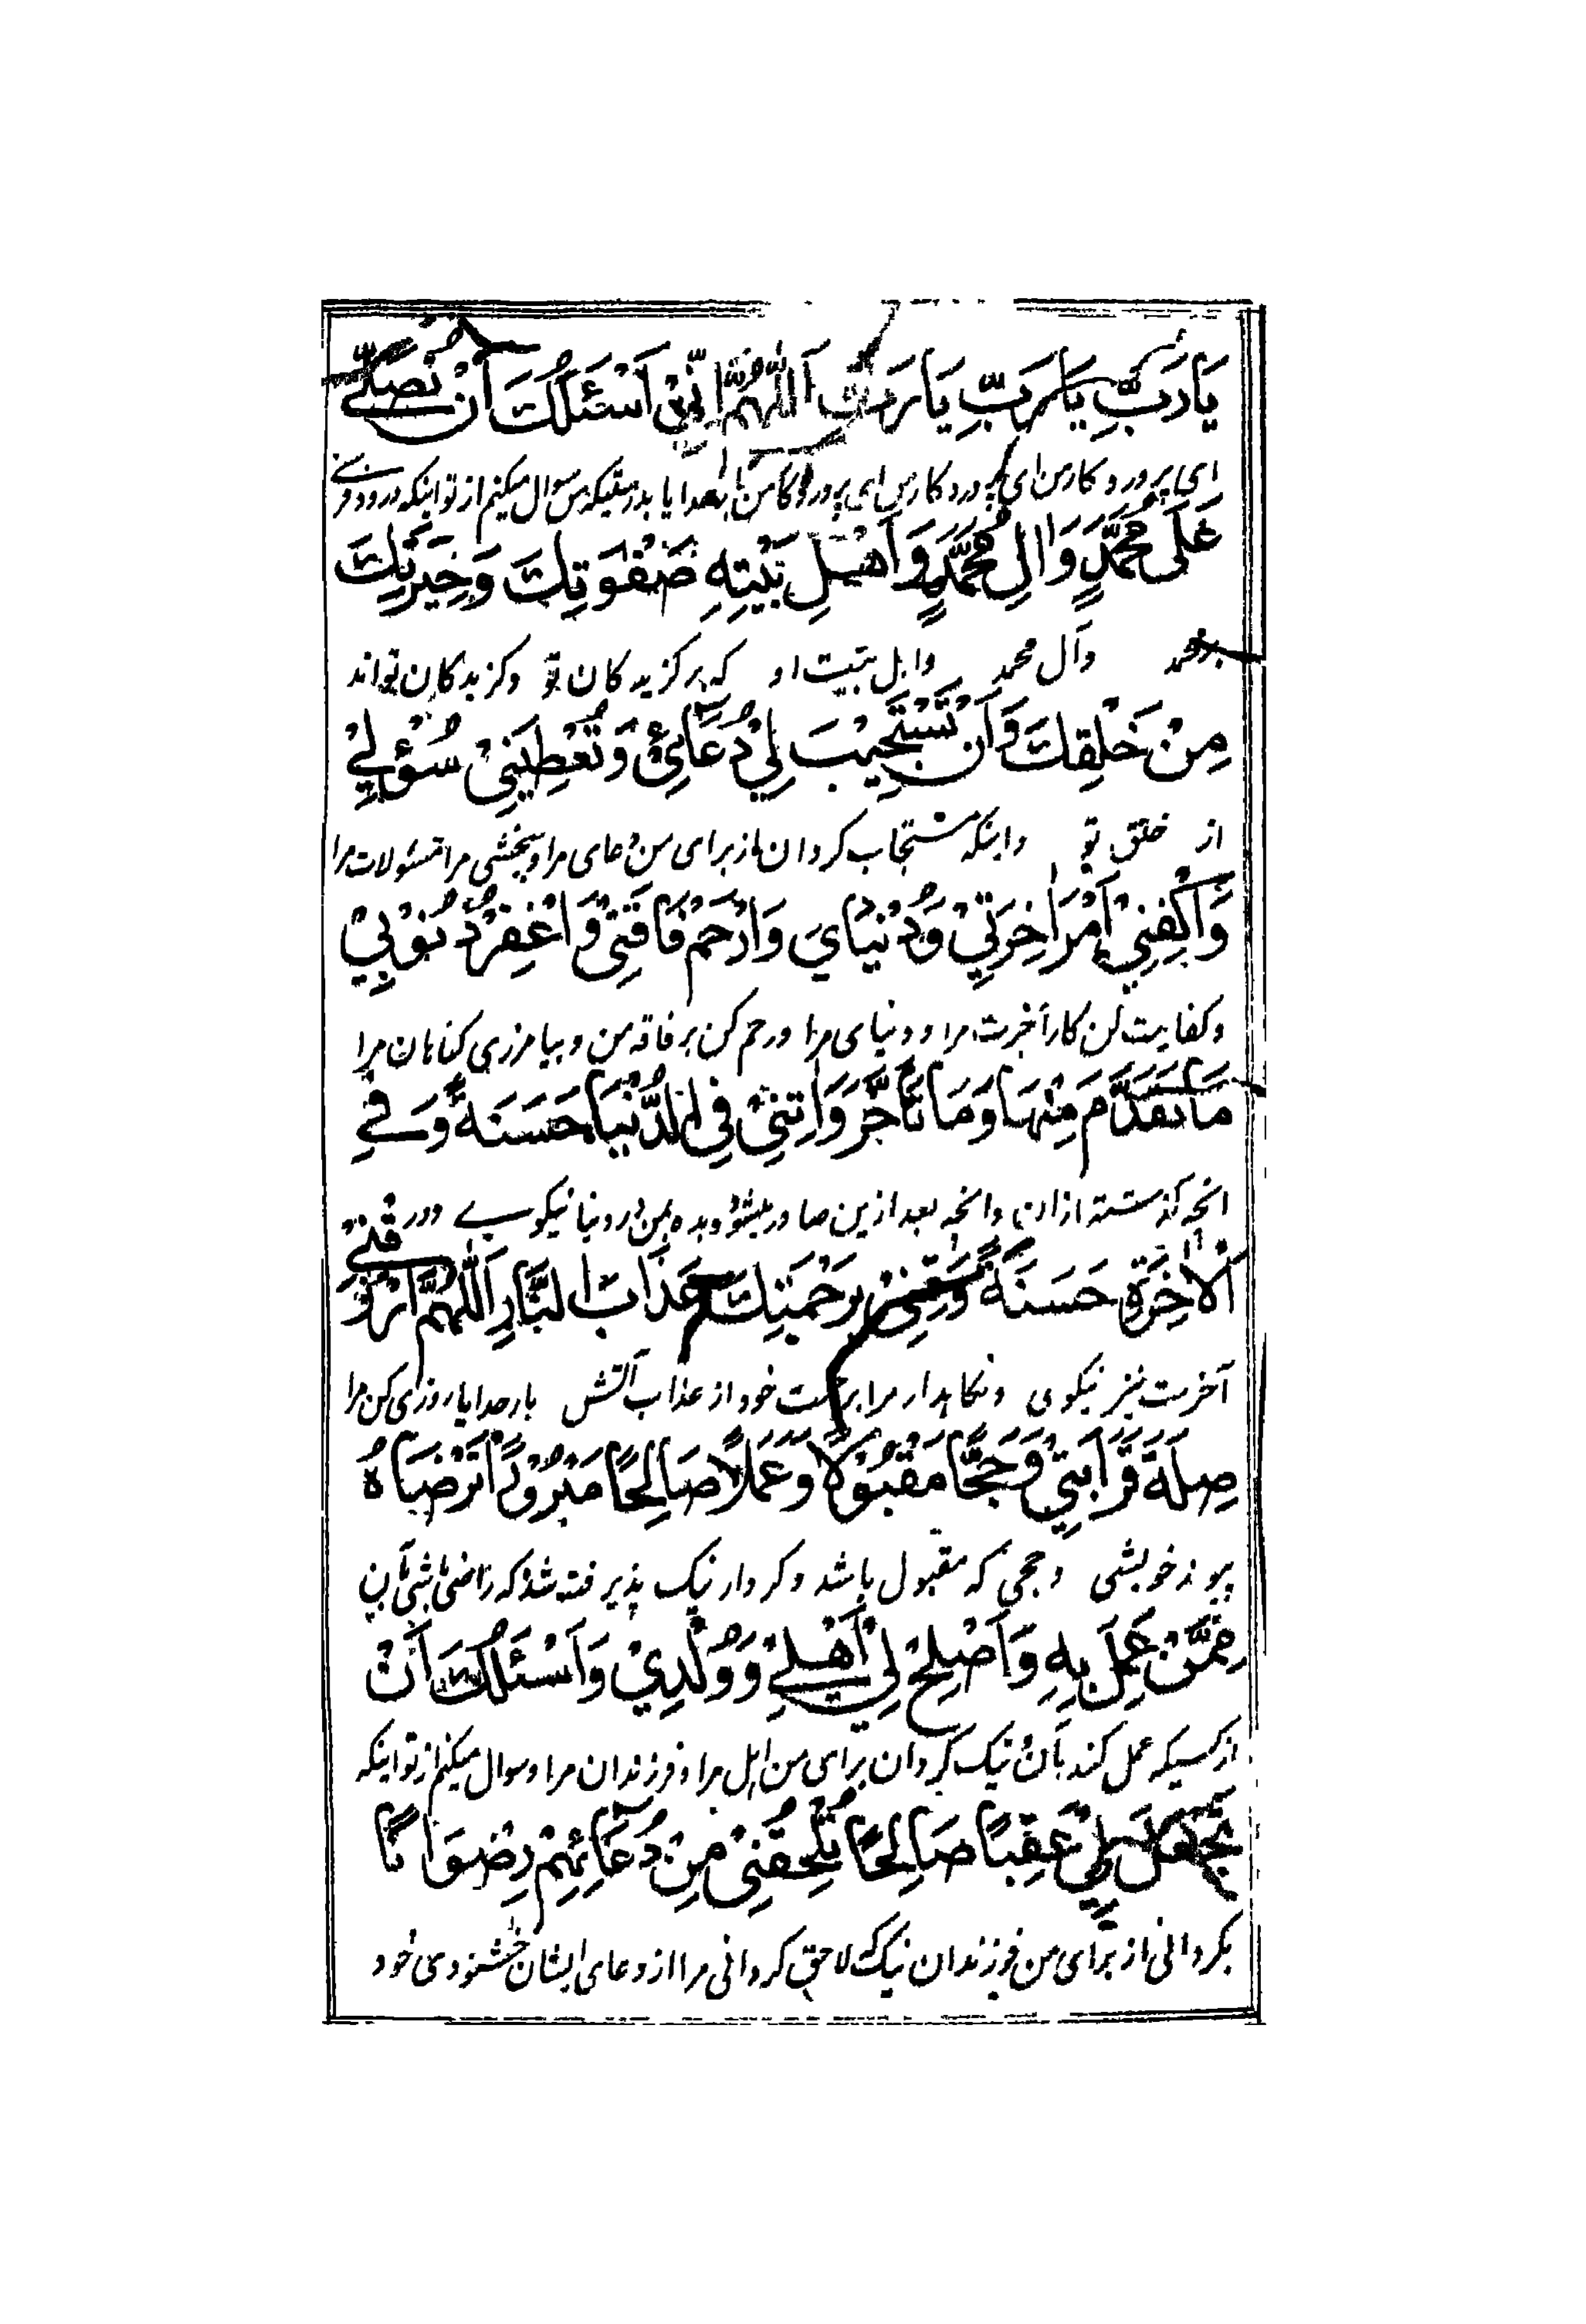 يَا رَبِّ يَا رَبِّ يَا رَبِّ اَللّٰهُمَّ اِنِّيْ اَسْئَلُكَ اَنْ تُصَلِّيَ
ای پروردکار من ای پروردکار من ای پروردکار من بارخدایا بدرستیکه من سوال میکنم از تو اینکه درود فرستی
عَلٰى مُحَمَّدٍ وَاٰلِ مُحَمَّدٍ وَاَهْلِ بَيْتِهِ صَفْوَتِكَ وَخِيَرَتِكَ
بر محمد وآل محمد واہل بیت او که برکزیدکان تو وکزیدکان تواند
مِنْ خَلْقِكَ وَاَنْ تَسْتَجِيْبَ لِيْ دُعَائِيْ وَتُعْطِيَنِيْ سُؤْلِيْ
از خلق تو واینکه مستجاب کردانی از برای من دعای مرا وبخشی مرا مسئولات مرا
وَاكْفِنِيْ اَمْرَ اٰخِرَتِيْ وَدُنْيَايَ وَارْحَمْ فَاقَتِيْ وَاغْفِرْ ذُنُوْبِيْ
وکفایت کن کار آخرت مرا ودنیای مرا ورحم کن بر فاقه من وبیامرزی کناہان مرا
مَا تَقَدَّمَ مِنْهَا وَمَا تَاَخَّرَ وَاٰتِنِيْ فِي الدُّنْيَا حَسَنَةً وَفِي
انچه کذشته ازان وانچه بعد ازین صادر میشود وبده بمن در دنیا نیکویی ودر
اَلْاٰخِرَةِ حَسَنَةً وَقِنِيْ بِرَحْمَتِكَ عَذَابَ النَّارِ اَللّٰهُمَّ ارْزُقْنِيْ
آخرت نیز نیکوی ونکاہدار مرا برحمت خود از عذاب آتش بارخدایا روزی کن مرا
صِلَةَ قَرَابَتِيْ وَحَجًّا مَقْبُوْلًا وَعَمَلًا صَالِحًا مَبْرُوْرًا تَرْضَاهُ
پیوند خویشی وحجی که مقبول باشد وکردار نیک پذیرفته شده که راضی باشی بآن
مِمَّنْ عَمِلَ بِهِ وَاَصْلِحْ لِيْ اَهْلِيْ وَوُلْدِيْ وَاَسْئَلُكَ اَنْ
از کسیکه عمل کند بآن ونیک کردان برای من اہل مرا وفرزندان مرا وسوال میکنم از تو اینکه
تَجْعَلَ لِيْ عَقِبًا صَالِحًا تُلْحِقُنِيْ مِنْ دُعَائِهِمْ رِضْوَانًا
بکردانی از برای من فرزندان نیک که لاحق کردانی مرا از دعای ایشان خشنودی خود